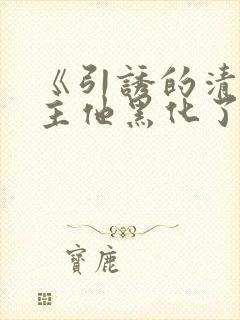 《引誘的清
主他黑化了
寶鹿